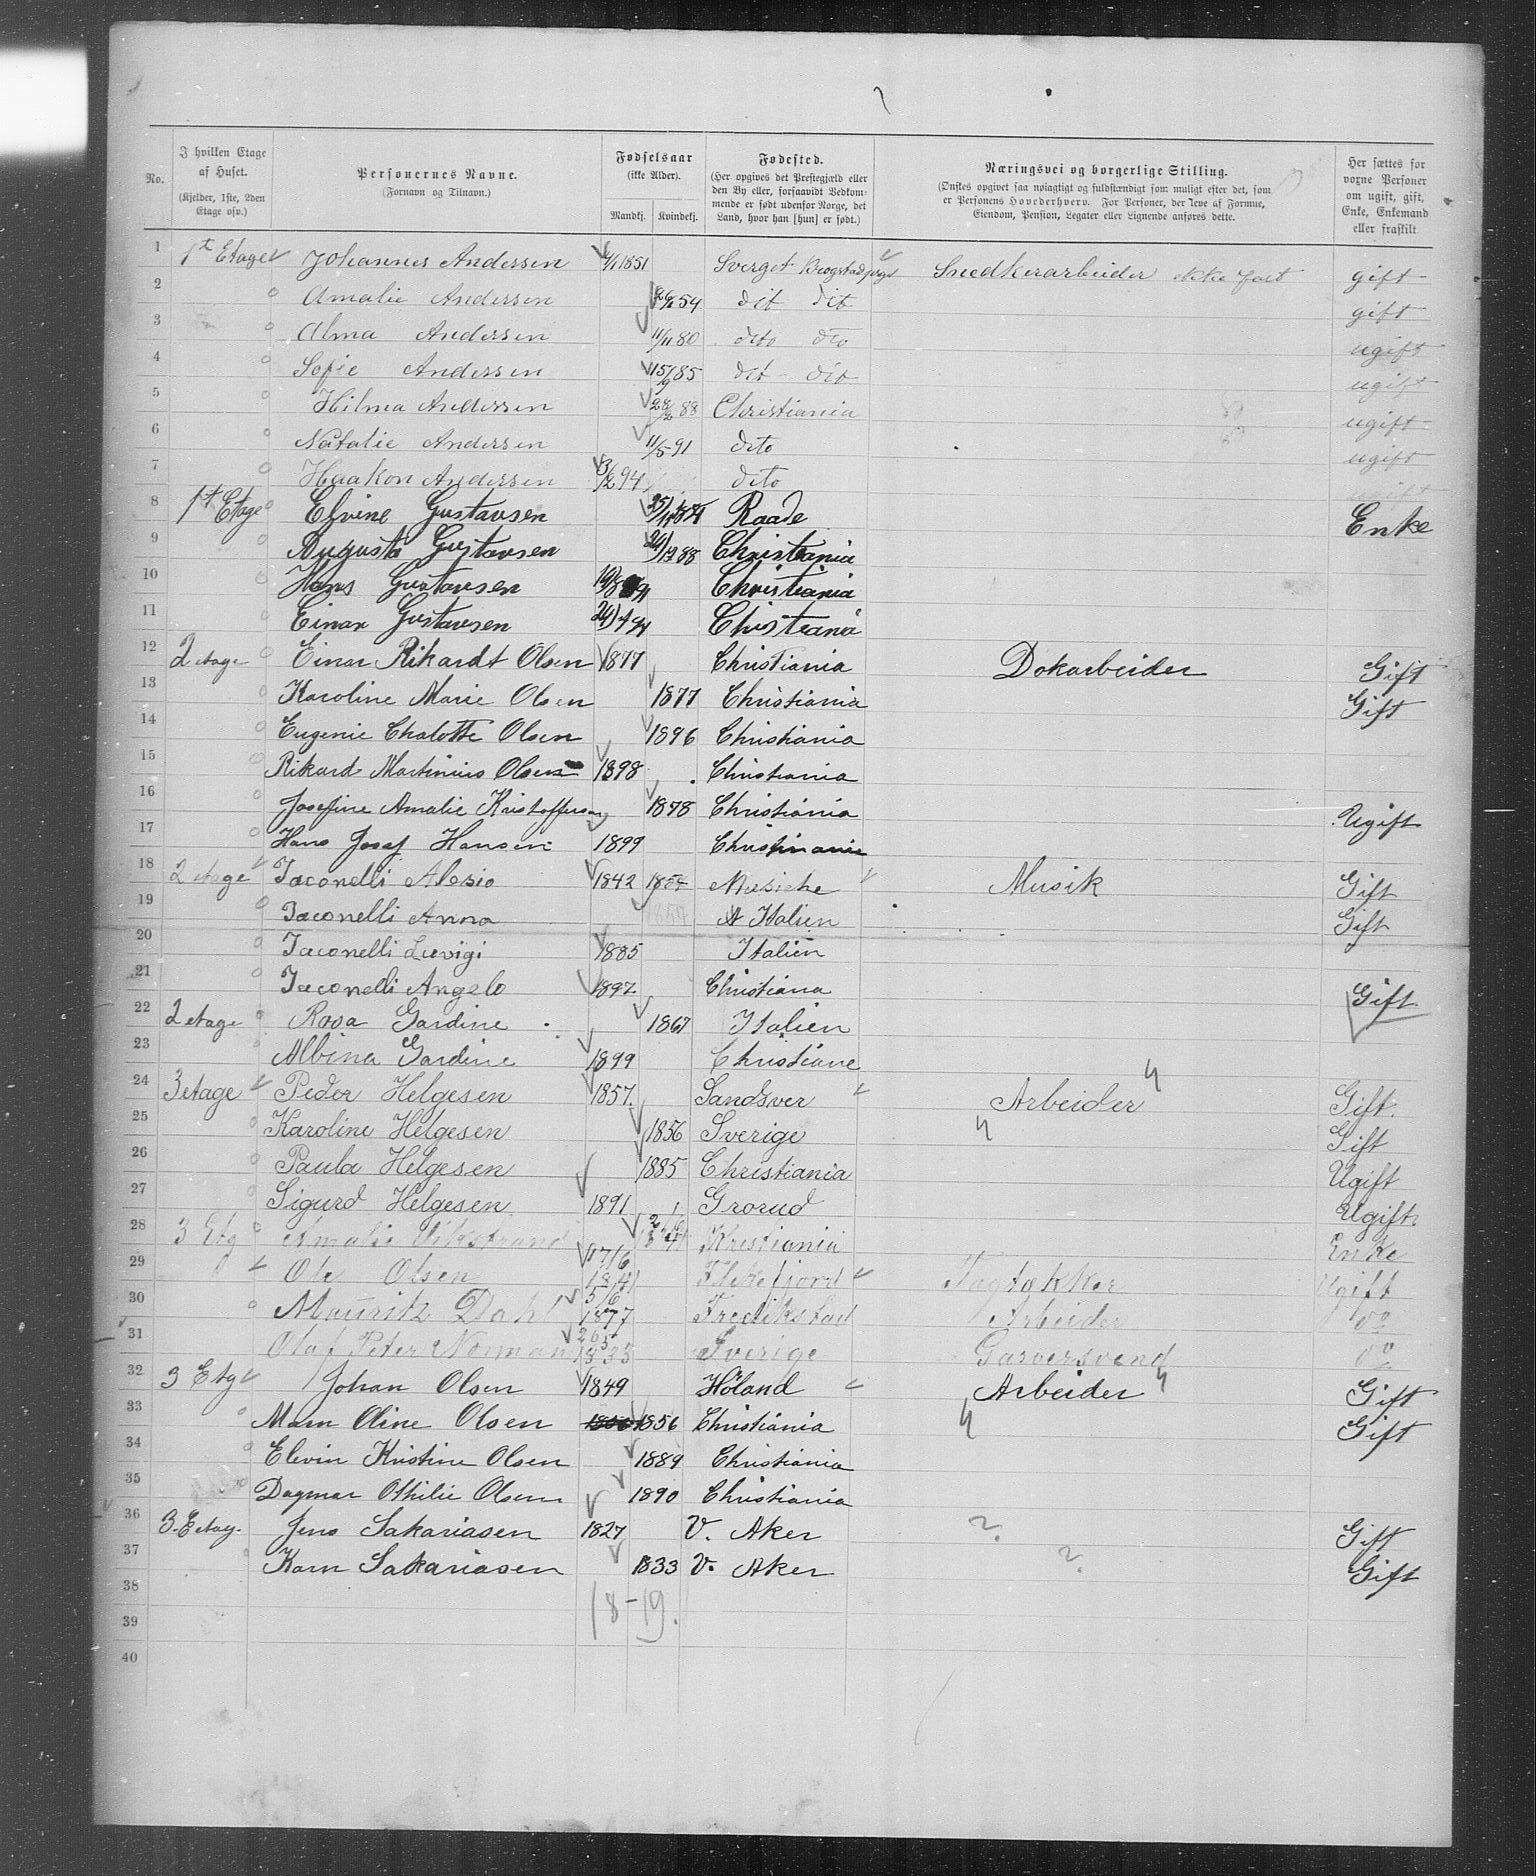 No. I hvilken Etage af Huset. (Kjelder, 1ste, 2den Etage osv.) Personernes Navne. (Fornavn og Tilnavn.) Fødselsaar (ikke Alder). Mandkj. Kvindekj. Fødested. (Her opgives det Prestegjæld eller den By eller, forsaavidt Vedkommende er født udenfor Norge, det Land, hvor han [hun] er født.) Næringsvei og borgerlige Stilling. (Ønskes opgivet saa nøiagtigt og fuldstændigt som muligt efter det, som er Personens Hovederhverv. For Personer, der leve af Formue, Eiendom, Pension, Legater eller Lignende anføres dette. Her sættes for voxne Personer om ugift, gift, Enke, Enkemand eller fraskilt
1 1t Etage Johannes Andersen 1851 Sverget Snedkerarbeider ikke fast gift
2 Amalie Andersen 54 dit dit gift
3 Alma Andersen 11/11 80 dito dto ugift
4 Sofie Andersen 15/9 85 dit dit ugift
5 Hilma Andersen 28/2 88 Christiania ugift
6 Natalie Andersen 11/5 91 dito ugift
7 Haakon Andersen 3/2 94 dito
8 1t Etage Elvine Gustavsen Raade Enke
9 Augusta Gustavsen 88 Christiania
10 Hans Gustavsen 91 Christiania
11 Einar Gustavsen Christiania
12 2 etage Einar Rikardt Olsen 1877 Christiania Dokarbeider Gift
13 Karoline Marie Olsen 1877 Christiania Gift
14 Eugenie Chalotte Olsen 1896 Christiania
15 Rikard Martinius Olsen 1898 Christiania
16 Josefine Amalie Kristoffersen 1878 Christiania Ugift
17 Hans Josef Hansen 1899 Christiania
18 2 etage Iaconelli Alesio 1842 Musiche Musik Gift
19 Iaconelli Anna Italien Gift
20 Iaconelli Luvigi 1885 Italien
21 Iaconelli Angelo 1897. Christiana
22 2 etage Rosa Gardine 1867 Italien Gift
23 Albina Gardine 1899 Christiane
24 3 etage Peder Helgesen 1857. Sandsver Arbeider Gift.
25 Karoline Helgesen 1856 Sverige Gift
26 Paula Helgesen 1885 Christiania Ugift
27 Sigurd Helgesen 1891 Grorud Ugift
28 3 Etg Amalie Vikstrand Kristiania Enke
29 Ole Olsen 17/6 1841 Flekefjord Tagtækker Ugift
30 Mauritz Dahl 5/6 1877 Fredikstad Arbeider do
31 Olaf Peter Norman Sverige Garversvend do
32 3 Etg Johan Olsen 1849 Höland Arbeider Gift
33 Maren Oline Olsen 1856 Christiania Gift
34 Elevin Kristine Olsen 1889 Christiania
35 Dagmar Othilie Olsen 1890 Christiania
36 3. Etag. Jens Sakariasen 1827 V. Aker ? Gift
37 Karn Sakariasen 1833 V. Aker ? Gift
38
39 18-19.
40